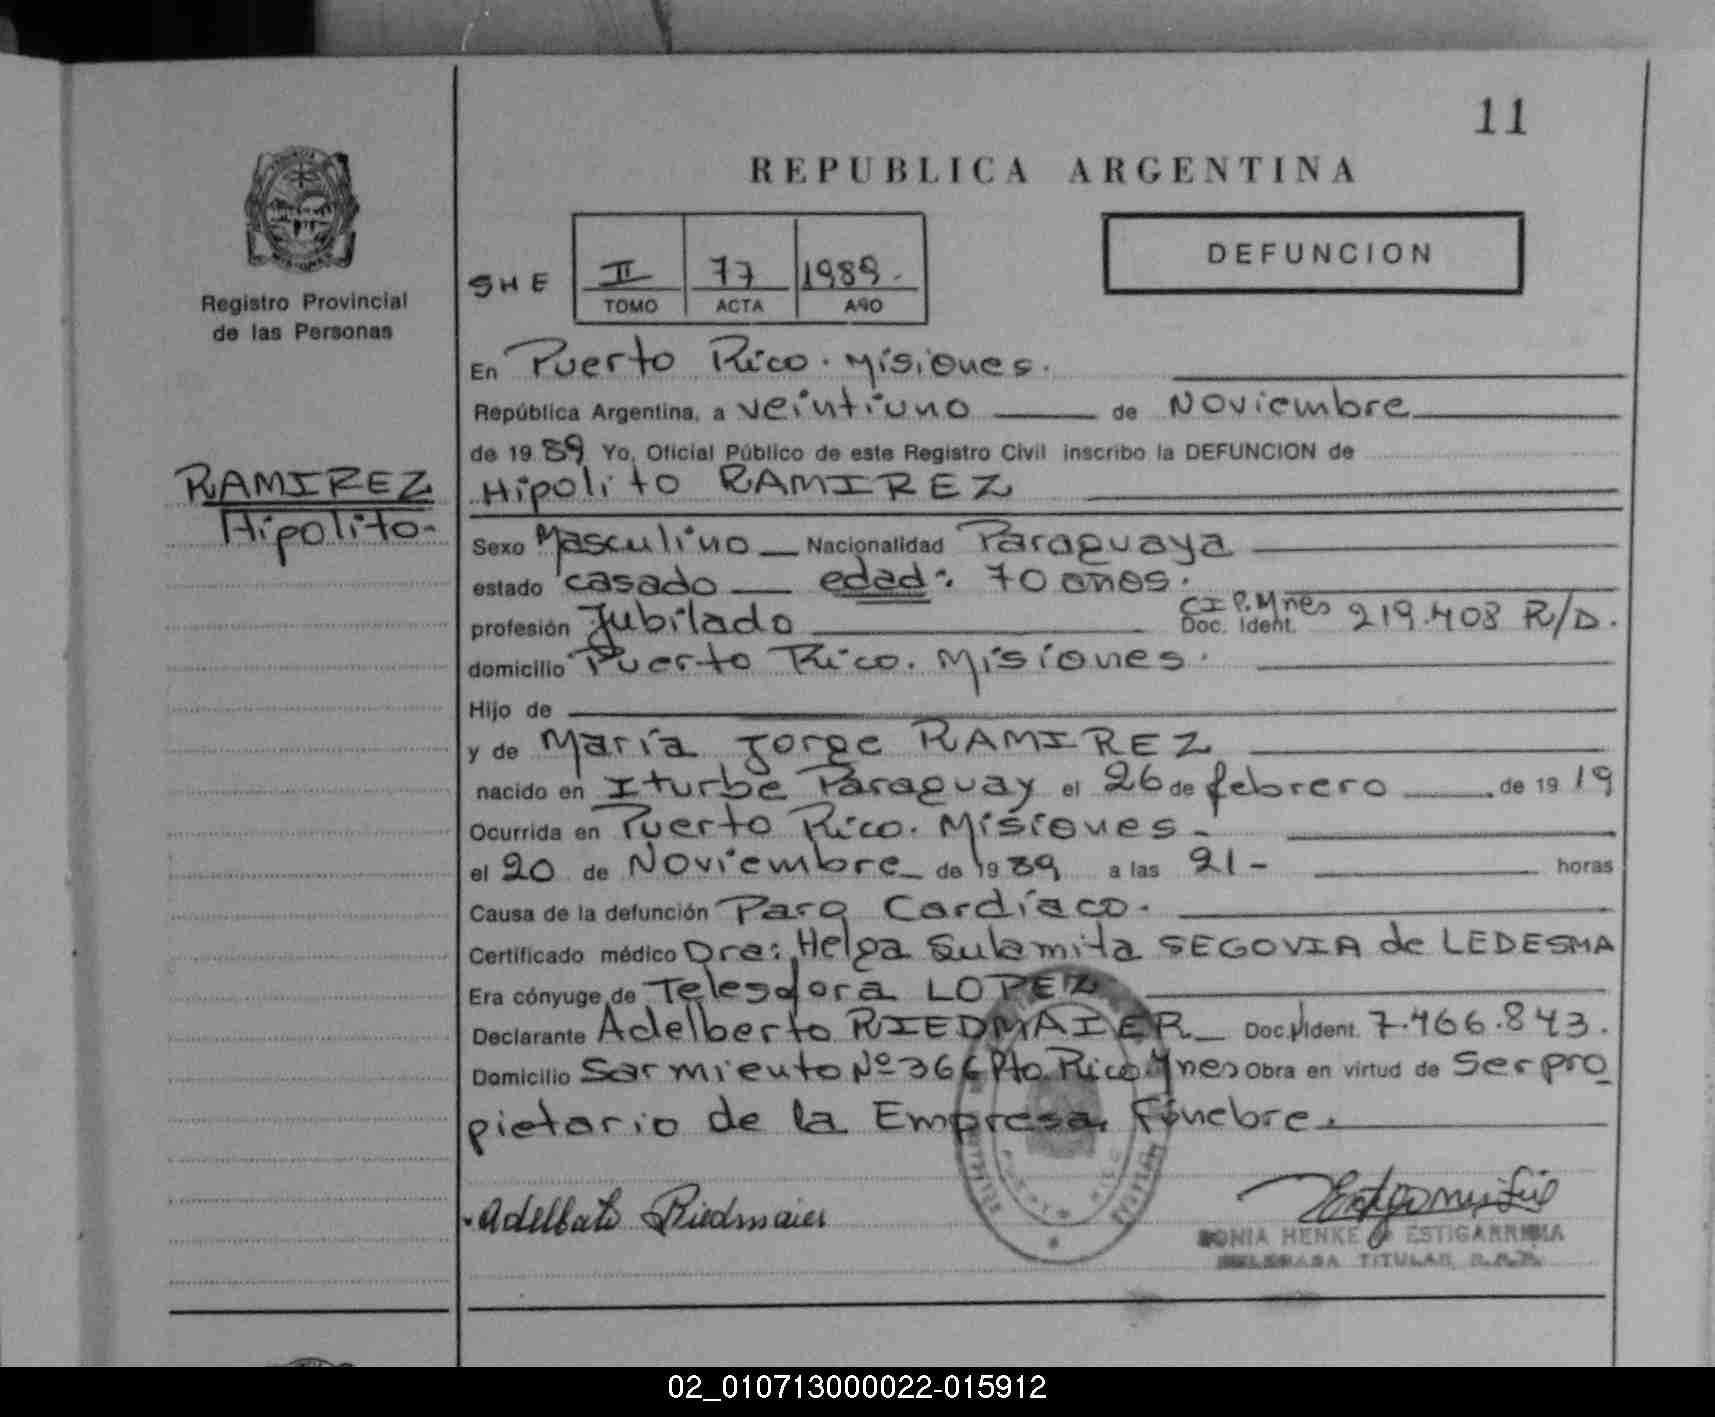 11
REPUBLICA ARGENTINA
DEFUNCION
SHE II 77 1989.
TOMO ACTA AÑO
Registro Provincial
de las Personas
RAMIREZ
Hipolito-
En Puerto Rico. Misiones.
República Argentina, a veintiuno de Noviembre
de 1989 Yo, Oficial Público de este Registro Civil inscribo la DEFUNCION de
Hipolito RAMIREZ
Sexo Masculino Nacionalidad Paraguaya
estado casado edad: 70 años.
profesión Jubilado C.I.P.Mnes Doc. Ident. 219.408 R/D.
domicilio Puerto Rico. Misiones.
Hijo de
y de María Jorge RAMIREZ
nacido en Iturbe Paraguay el 26 de febrero de 1919
Ocurrida en Puerto Rico. Misiones-
el 20 de Noviembre de 1989 a las 21- horas
Causa de la defunción Paro Cardíaco.
Certificado médico Dra: Helga Sulamita SEGOVIA de LEDESMA
Era cónyuge de Telesdora LOPEZ
Declarante Adelberto RIEDMAIER Doc. Ident. 7.466.843.
Domicilio Sarmiento Nº 366 Pto. Rico Mnes Obra en virtud de Ser pro
pietario de la Empresa Fúnebre.
Adelberto Riedmaier
SONIA HENKE ESTIGARRIBIA
TITULAR
02_010713000022-015912